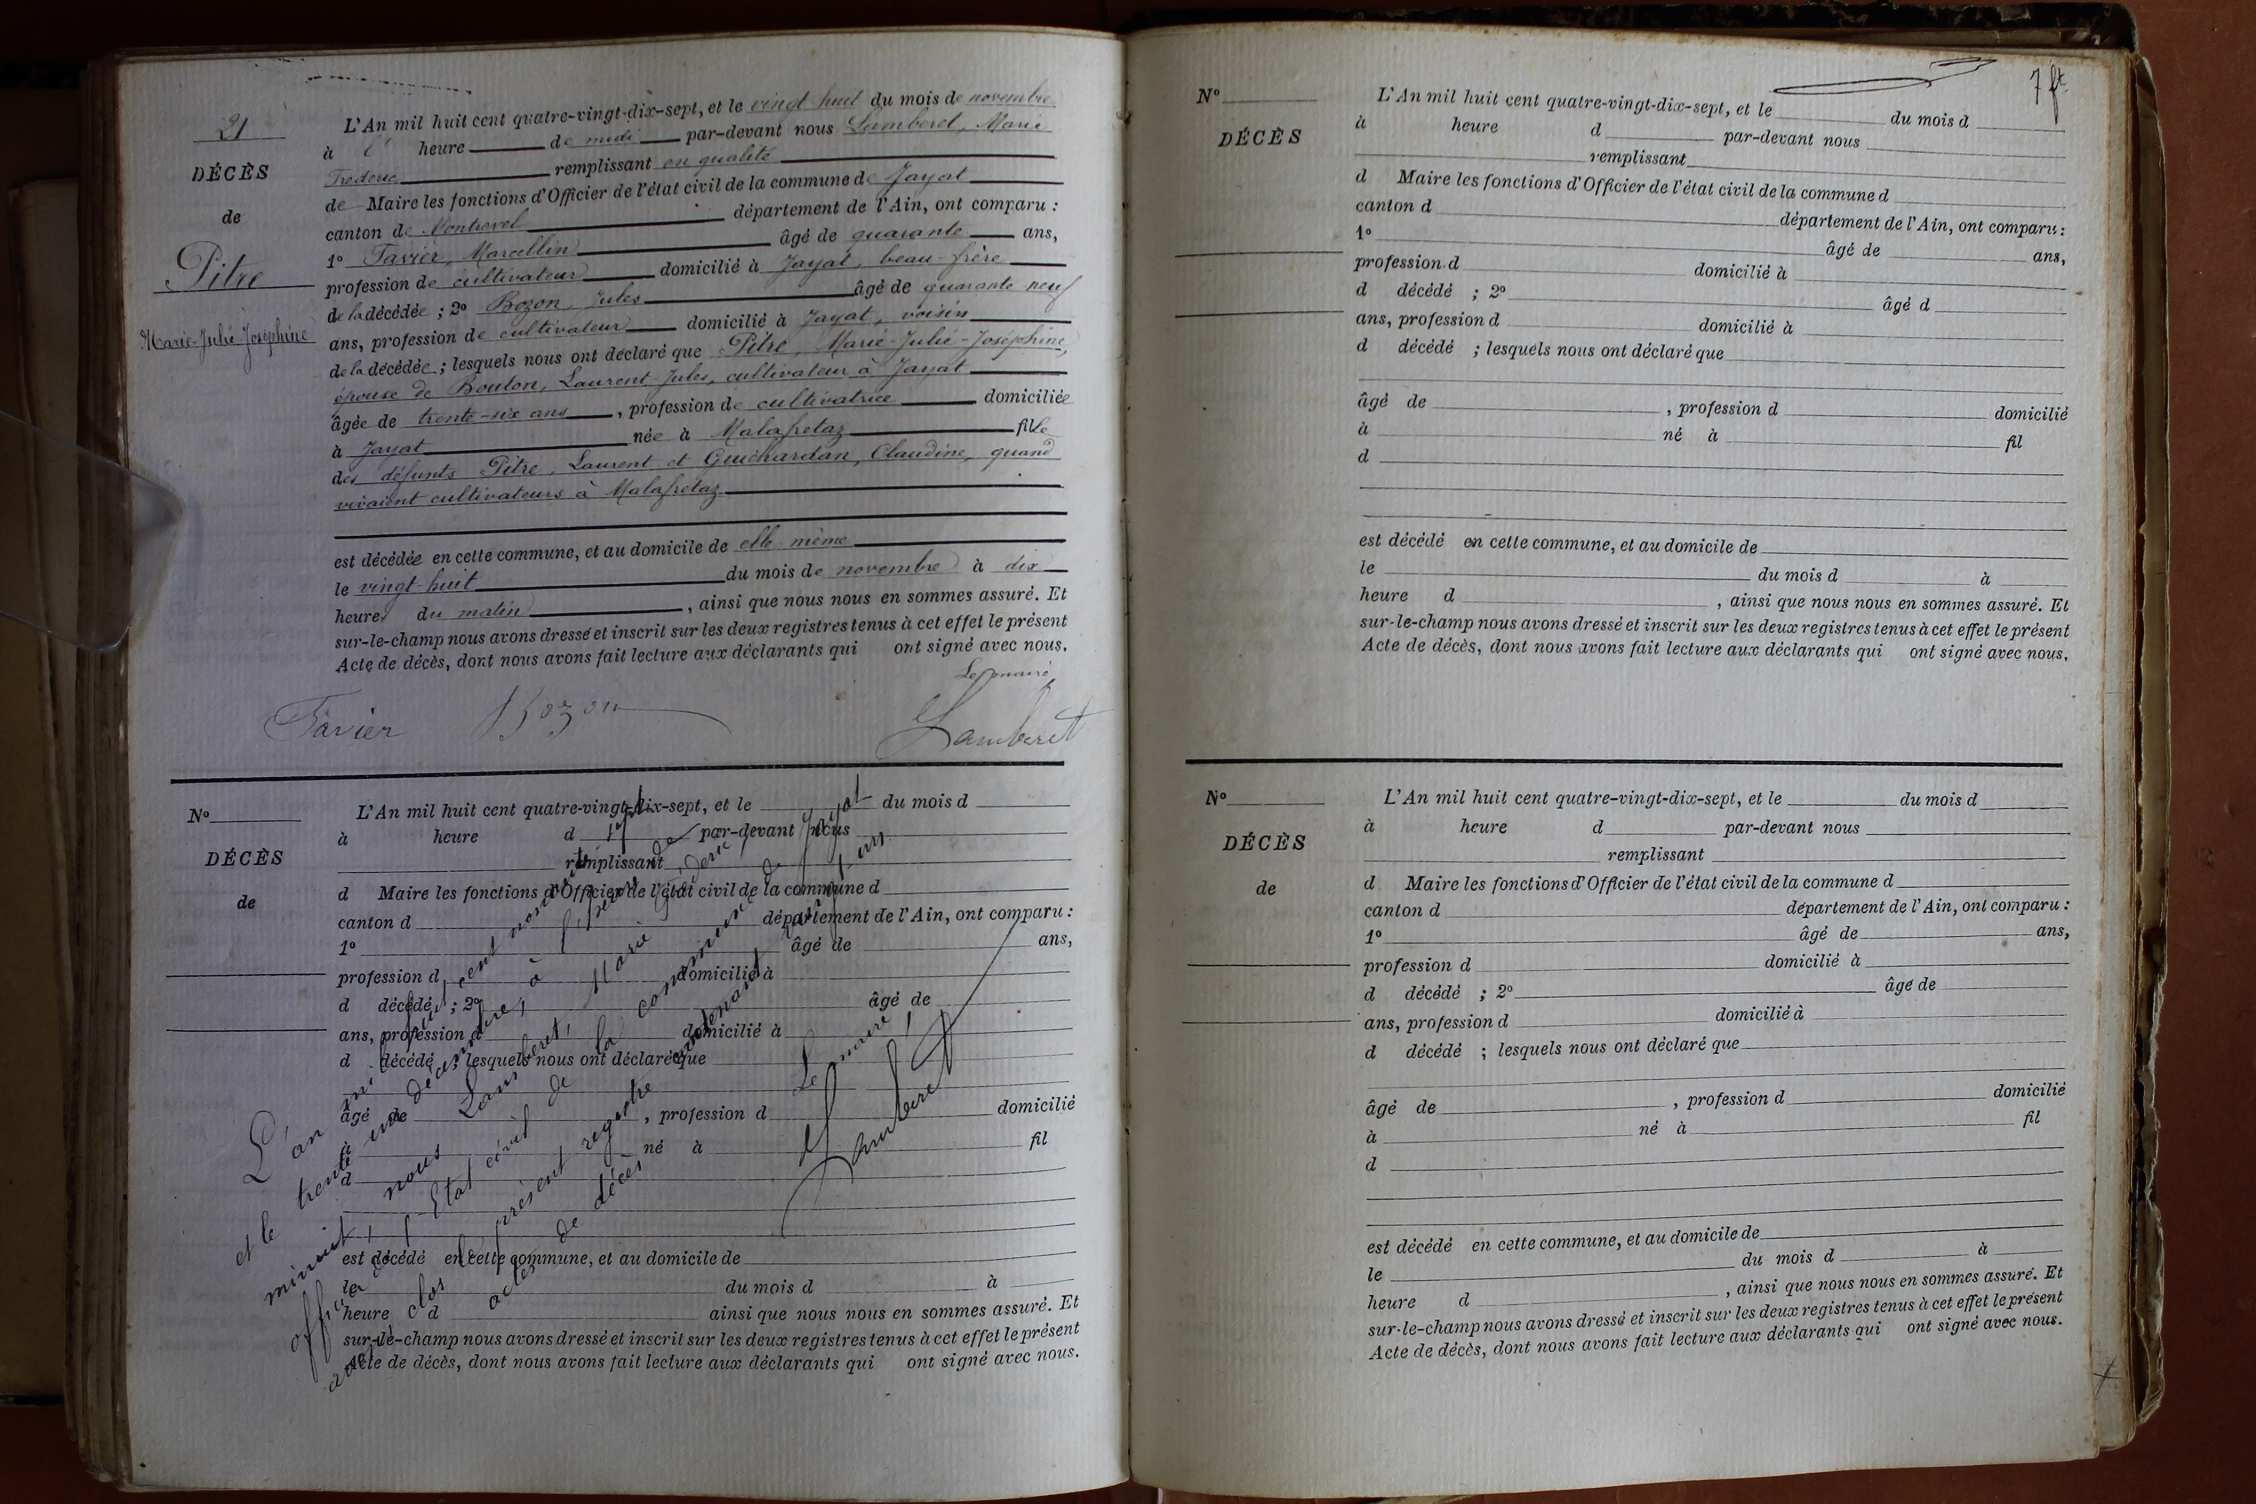 21
DÉCÈS
de
Pitre
Marie-Julie-Joséphine
L'An mil huit cent quatre-vingt-dix-sept, et le vingt huit du mois de novembre
à heure de midi par-devant nous Lamberet, Marie
Frédéric remplissant en qualité
de Maire les fonctions d'Officier de l'état civil de la commune de Jayat
canton de Montrevel département de l'Ain, ont comparu :
1º Favier, Marcellin âgé de quarante ans,
profession de cultivateur domicilié à Jayat, beau-frère
de la décédée ; 2º Bozon, Jules âgé de quarante neuf
ans, profession de cultivateur domicilié à Jayat, voisin
de la décédée ; lesquels nous ont déclaré que Pitre, Marie-Julie-Joséphine,
épouse de Bouton, Laurent Jules, cultivateur à Jayat
âgée de trente-six ans, profession de cultivatrice domiciliée
à Jayat née à Malafretaz fille
des défunts Pitre, Laurent et Guichardan, Claudine, quand
vivaient cultivateurs à Malafretaz
est décédée en cette commune, et au domicile de elle-même
le vingt-huit du mois de novembre à dix
heures du matin, ainsi que nous nous en sommes assuré. Et
sur-le-champ nous avons dressé et inscrit sur les deux registres tenus à cet effet le présent
Acte de décès, dont nous avons fait lecture aux déclarants qui ont signé avec nous.
Le maire
Favier Bozon Lamberet
Nº
DÉCÈS
de
L'An mil huit cent quatre-vingt-dix-sept, et le du mois d
à heure d par-devant nous
remplissant
d Maire les fonctions d'Officier de l'état civil de la commune d
canton d département de l'Ain, ont comparu :
1º âgé de ans,
profession d domicilié à
d décédé ; 2º âgé de
ans, profession d domicilié à
d décédé ; lesquels nous ont déclaré que
âgé de , profession d domicilié
à né à fil
d
est décédé en cette commune, et au domicile de
le du mois d à
heure d ainsi que nous nous en sommes assuré. Et
sur-le-champ nous avons dressé et inscrit sur les deux registres tenus à cet effet le présent
Acte de décès, dont nous avons fait lecture aux déclarants qui ont signé avec nous.
L'an mil huit cent
et le trente un décembre, à
minuit, nous Lamberet, Marie Frédéric,
officier de l'Etat civil de la commune de Jayat
avons clos le présent registre contenant
actes de décès
Le maire,
Lamberet
7 ft
Nº
DÉCÈS
L'An mil huit cent quatre-vingt-dix-sept, et le du mois d
à heure d par-devant nous
remplissant
d Maire les fonctions d'Officier de l'état civil de la commune d
canton d département de l'Ain, ont comparu :
1º âgé de ans,
profession d domicilié à
d décédé ; 2º âgé d
ans, profession d domicilié à
d décédé ; lesquels nous ont déclaré que
âgé de , profession d domicilié
à né à fil
d
est décédé en cette commune, et au domicile de
le du mois d à
heure d , ainsi que nous nous en sommes assuré. Et
sur-le-champ nous avons dressé et inscrit sur les deux registres tenus à cet effet le présent
Acte de décès, dont nous avons fait lecture aux déclarants qui ont signé avec nous.
Nº
DÉCÈS
de
L'An mil huit cent quatre-vingt-dix-sept, et le du mois d
à heure d par-devant nous
remplissant
d Maire les fonctions d'Officier de l'état civil de la commune d
canton d département de l'Ain, ont comparu :
1º âgé de ans,
profession d domicilié à
d décédé ; 2º âgé de
ans, profession d domicilié à
d décédé ; lesquels nous ont déclaré que
âgé de , profession d domicilié
à né à fil
d
est décédé en cette commune, et au domicile de
le du mois d à
heure d , ainsi que nous nous en sommes assuré. Et
sur-le-champ nous avons dressé et inscrit sur les deux registres tenus à cet effet le présent
Acte de décès, dont nous avons fait lecture aux déclarants qui ont signé avec nous.